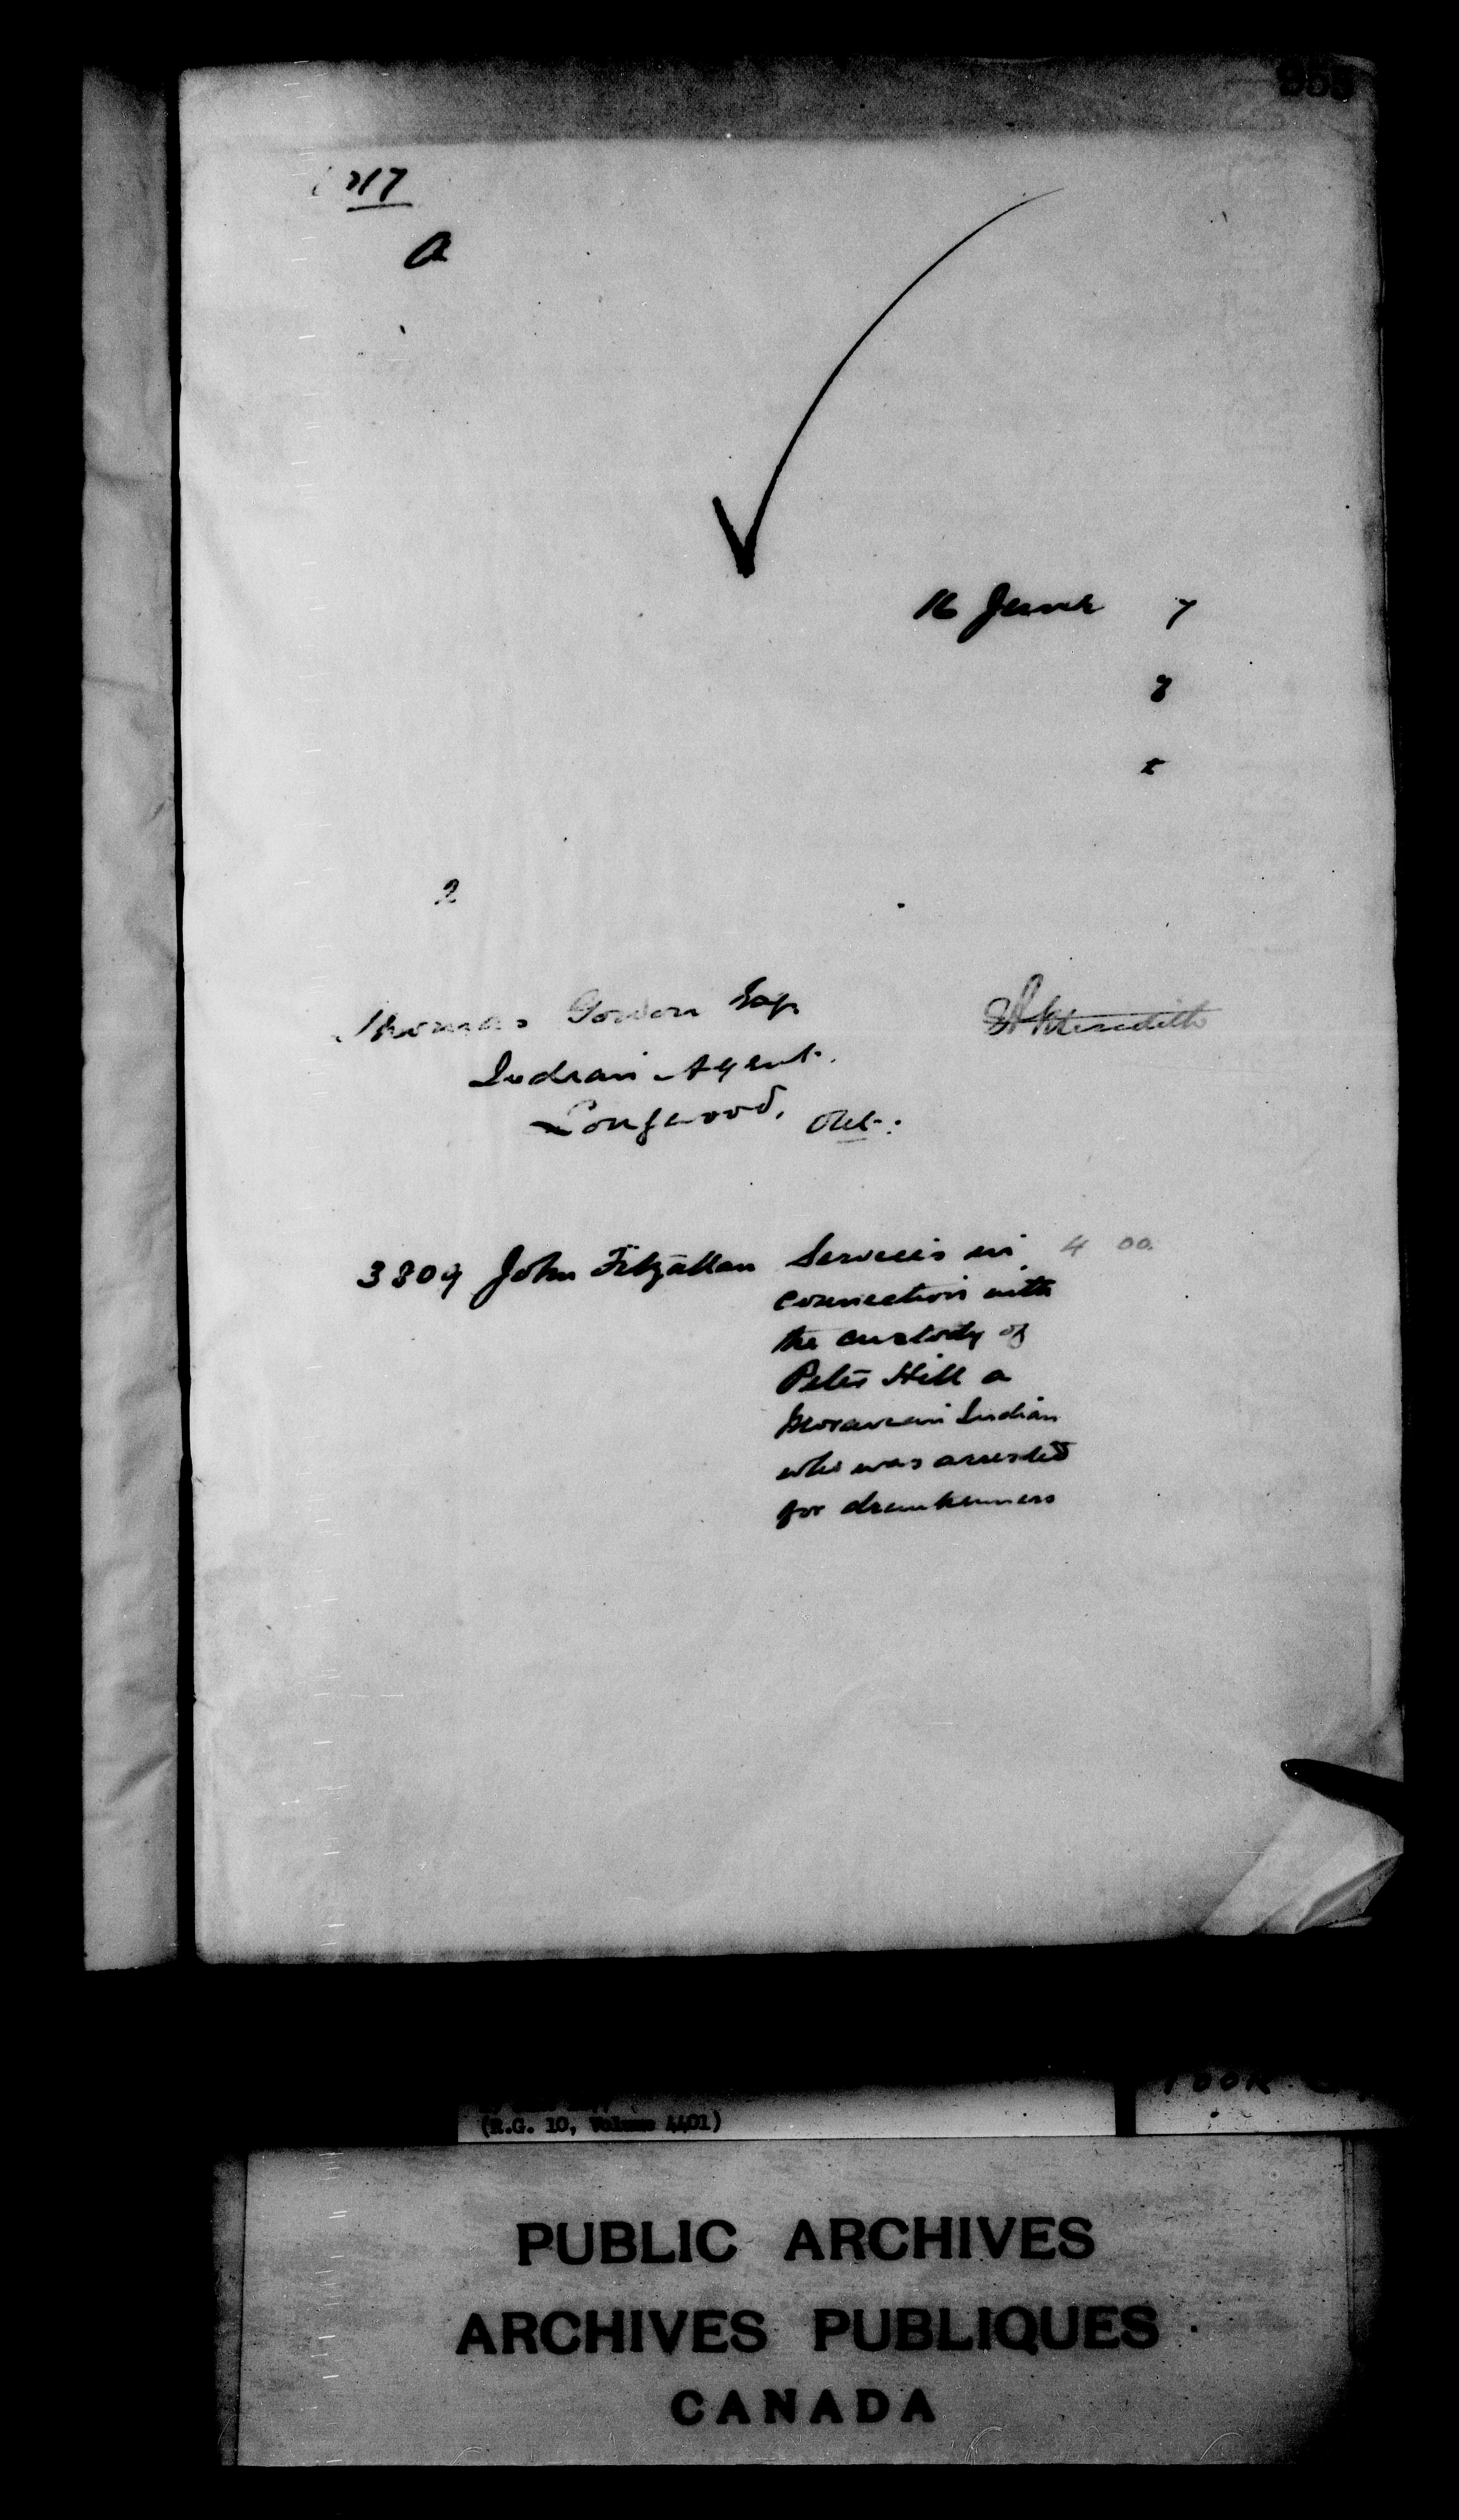 317
a
16 June 7
8
t
2
Thomas Gordon Esq
Indian Agent.
Longwood, Ont:
3809 John Fitzallan Services in 4 00.
connection with
the custody of
Peter Hill a
Moravian Indian
who was arrested
for drunkenness
(R.G. 10, Volume 4401)
PUBLIC ARCHIVES
ARCHIVES PUBLIQUES
CANADA